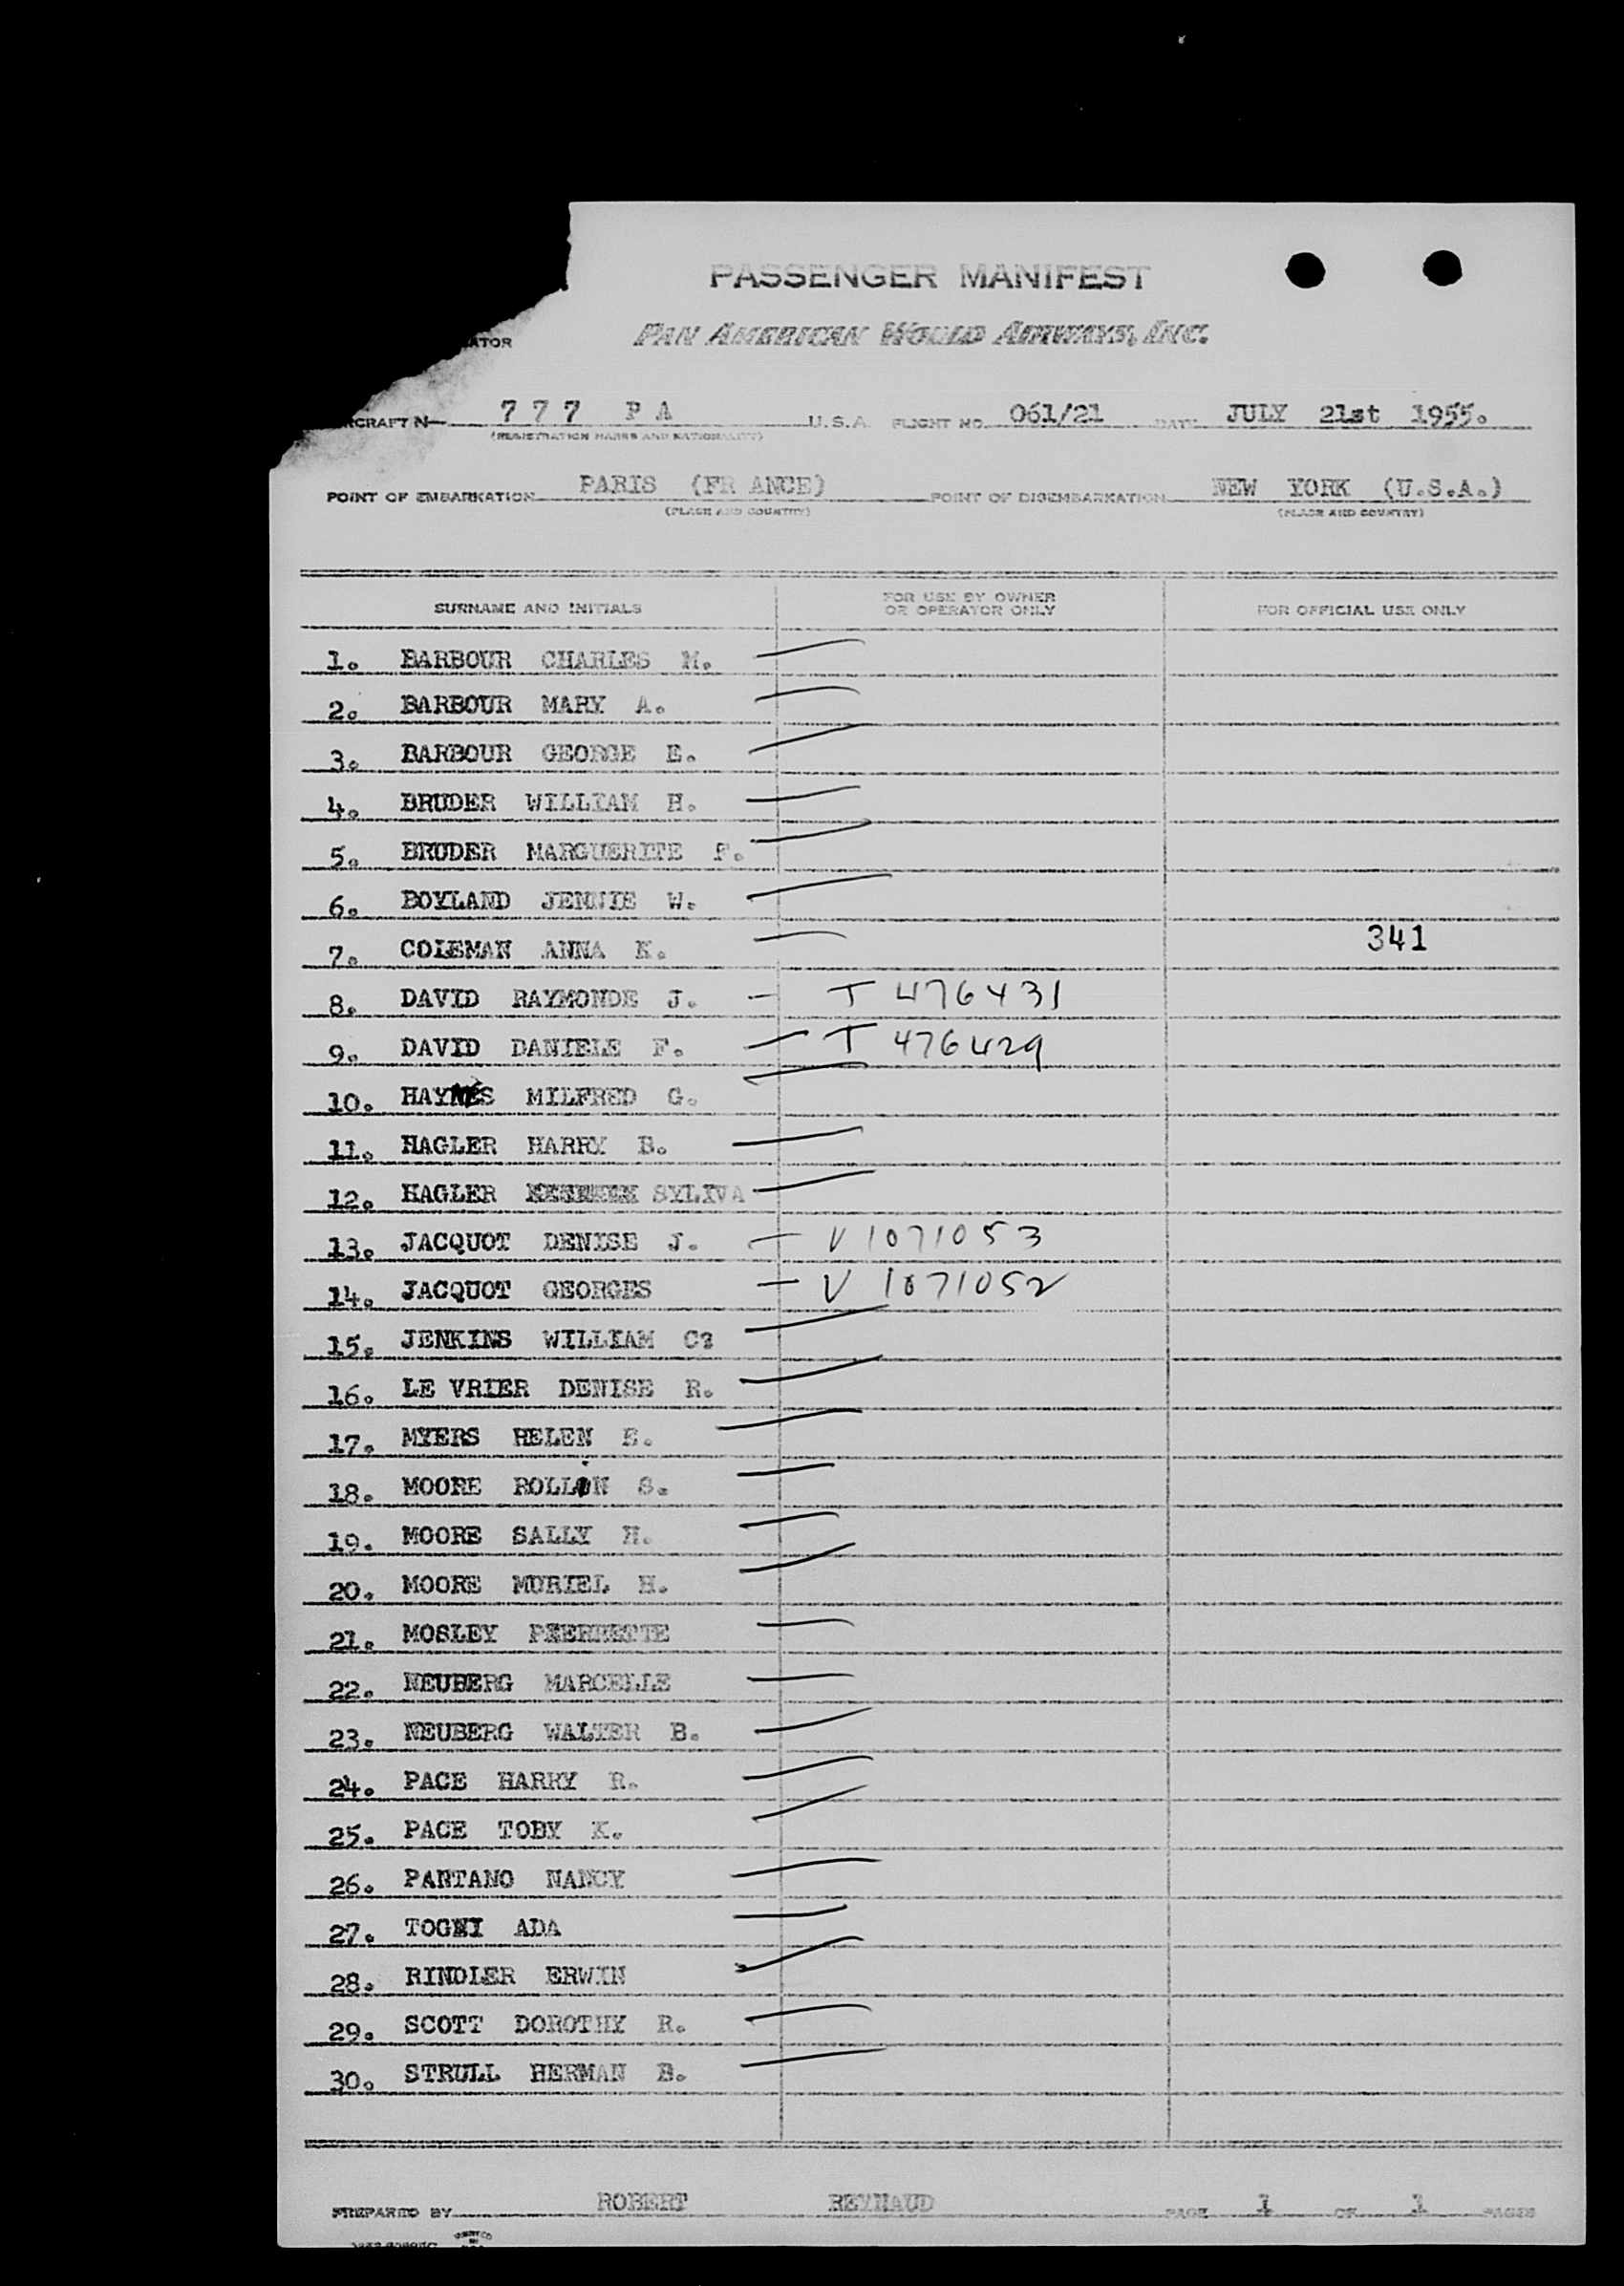 PASSENGER MANIFEST
PAN AMERICAN WORLD AIRWAYS, INC.
777 PA U.S.A. FLIGHT NO. 061/21 DATE JULY 21st 1955.
(REGISTRATION MARKS AND NATIONALITY)
POINT OF EMBARKATION PARIS (FR ANCE) POINT OF DISEMBARKATION NEW YORK (U.S.A.)
(PLACE AND COUNTRY) (PLACE AND COUNTRY)
SURNAME AND INITIALS FOR USE BY OWNER OR OPERATOR ONLY FOR OFFICIAL USE ONLY
1. BARBOUR CHARLES M.
2. BARBOUR MARY A.
3. BARBOUR GEORGE E.
4. BRUDER WILLIAM H.
5. BRUDER MARGUERITE F.
6. BOYLAND JENNIE W.
7. COLEMAN ANNA K. 341
8. DAVID RAYMONDE J. – T 476431
9. DAVID DANIELE F. – T 476429
10. HAYNES MILFRED G.
11. HAGLER HARRY B.
12. HAGLER SYLIVA
13. JACQUOT DENISE J. – V 1071053
14. JACQUOT GEORGES – V 1071052
15. JENKINS WILLIAM C?
16. LE VRIER DENISE R.
17. MYERS HELEN E.
18. MOORE ROLLIN S.
19. MOORE SALLY H.
20. MOORE MURIEL H.
21. MOSLEY PIERRETTE
22. NEUBERG MARCELLE
23. NEUBERG WALTER B.
24. PACE HARRY R.
25. PACE TOBY K.
26. PANTANO NANCY
27. TOGNI ADA
28. RINDLER ERWIN
29. SCOTT DOROTHY R.
30. STRULL HERMAN B.
PREPARED BY ROBERT REYNAUD PAGE 1 OF 1 PAGES